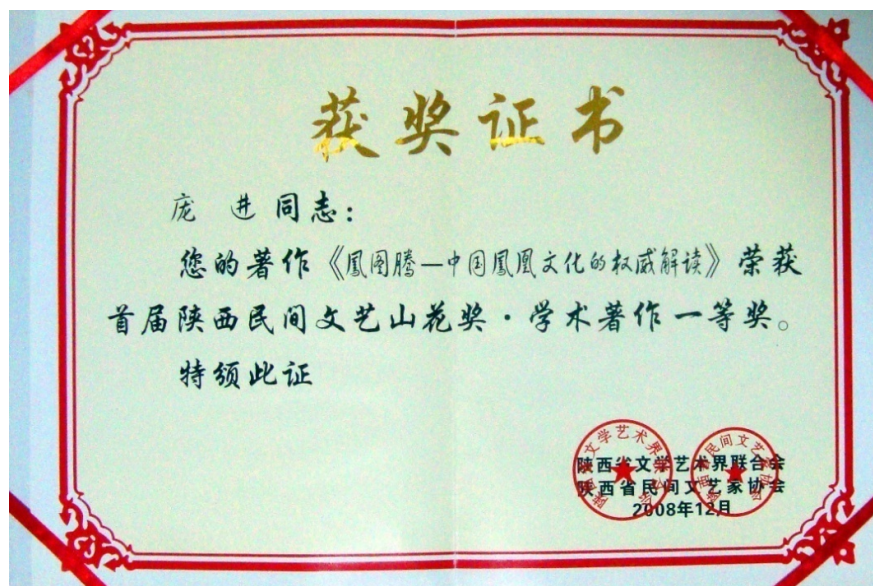 获奖证书
庞 进 同志：
您的著作《鳳图腾—中国鳳凰文化的权威解读》荣获
首届陕西民间文艺山花奖·学术著作一等奖。
特颁此证
陕西省文学艺术界联合会
陕西省民间文艺家协会
2008年12月